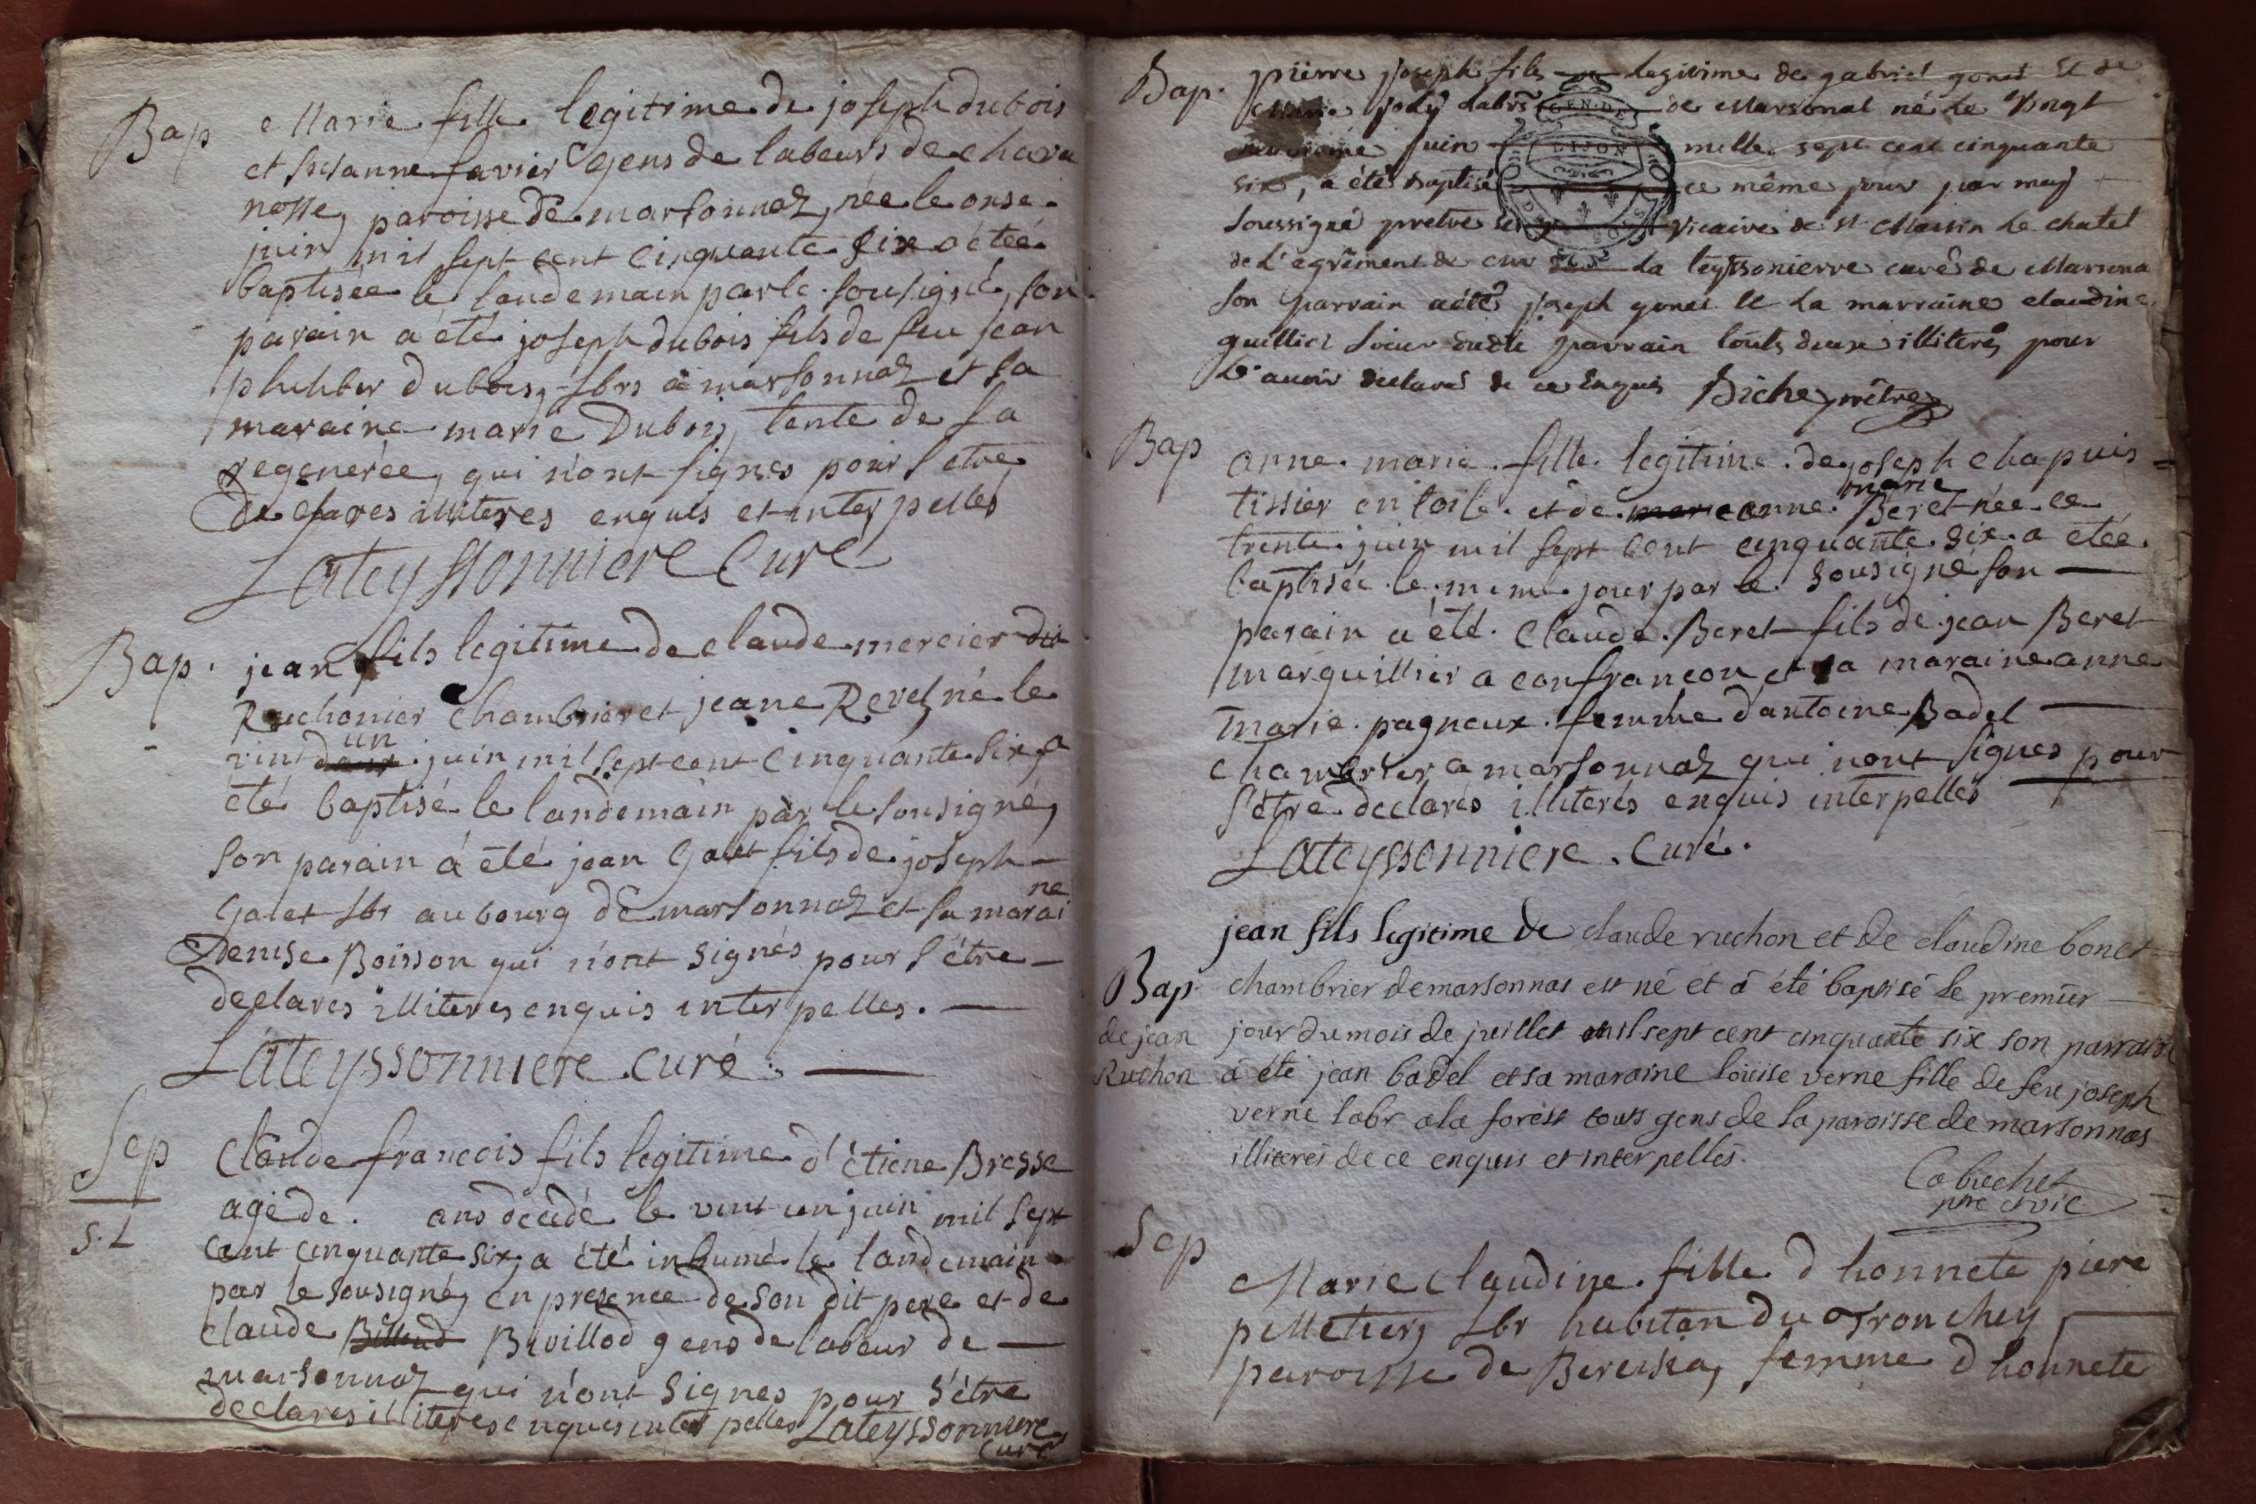 Bap
Marie fille legitime de joseph dubois
et susanne favier gens de labeurs de chava
nosse, paroisse de marsonnaz, née le onse
juin mil sept cent cinquante six a étée
baptisée le landemain par le sousigné, son
parain a été joseph dubois fils de feu jean
philiber dubois, lbrs a marsonnaz et sa
maraine marie Dubois, tente de la
regenerée, qui n'ont signes pour s'etre
declares illiteres enquis et interpelles
Lateyssonniere Curé
Bap. jean fils legitime de claude mercier dit
Ruchonier chambrier et jeane Revel, né le
un
vint deux juin mil sept cent cinquante six, a
été baptisé le landemain par le sousigné,
son parain a été jean Galet fils de joseph
Galet lbr au bourg de marsonnaz et sa marai
ne
Denise Boisson qui n'ont signés pour s'étre
declarés illiteres enquis interpelles.
Lateyssonniere curé
Sep
S. L
Claude francois fils legitime d'étiene Bresse
agé de . ans decedé le vint un juin mil sept
cent cinquante six, a été inhumé le landemain
par le sousigné, en presence de son dit pere et de
claude Billiud Bivillod gens de labeur de
marsonnaz qui n'ont signes pour s'étre
declares illiteres enquis inter pelles Lateyssonniere
curé
Bap. pierre joseph fils legitime de gabriel gonet et de
Marie joly labrs de Marsonat né le Vingt
neuvieme juin mille sept cent cinquante
six, a été Baptisé ce même jour par moy
soussigné pretre Vicaire de st Martin le chatel
de l'agrément de La teyssonierre curé de Marsona
son parrain a été joseph gonet et la marraine claudine
guillier soeur dudit parrain touts deux illiterés pour
l'avoir declaré de ce Enquis Biche, prêtre
Bap
anne marie fille legitime de joseph chapuis
tissier en toile et de marieanne marie Beret née ce
trente juin mil sept cent cinquante six a étée
baptisée le meme jour par le sousigné son
parain a été Claude Beret fils de jean Beret
marguillier a confrancon et sa maraine anne
marie pagneux femme d'antoine Badel
chambrier a marsonnaz qui nont signes pour
s'être declarés illiterés enquis interpelles
Lateyssonniere. Curé.
Bap
de jean
Ruchon
jean fils legitime de claude ruchon et de claudine bonet
chambrier de marsonnas est né et a été baptisé le premier
jour du mois de juillet mil sept cent cinquante six son parrain
a été jean badel et sa maraine louise verne fille de feu joseph
verne labr a la forest touts gens de la paroisse de marsonnas
illiterés de ce enquis et interpellés.
Cabuchet
ptre et vic
Sep
Marie claudine fille d honnete piere
pelletier, lbr habitan du Tronchey
paroisse de Bereisia, femme d honnete